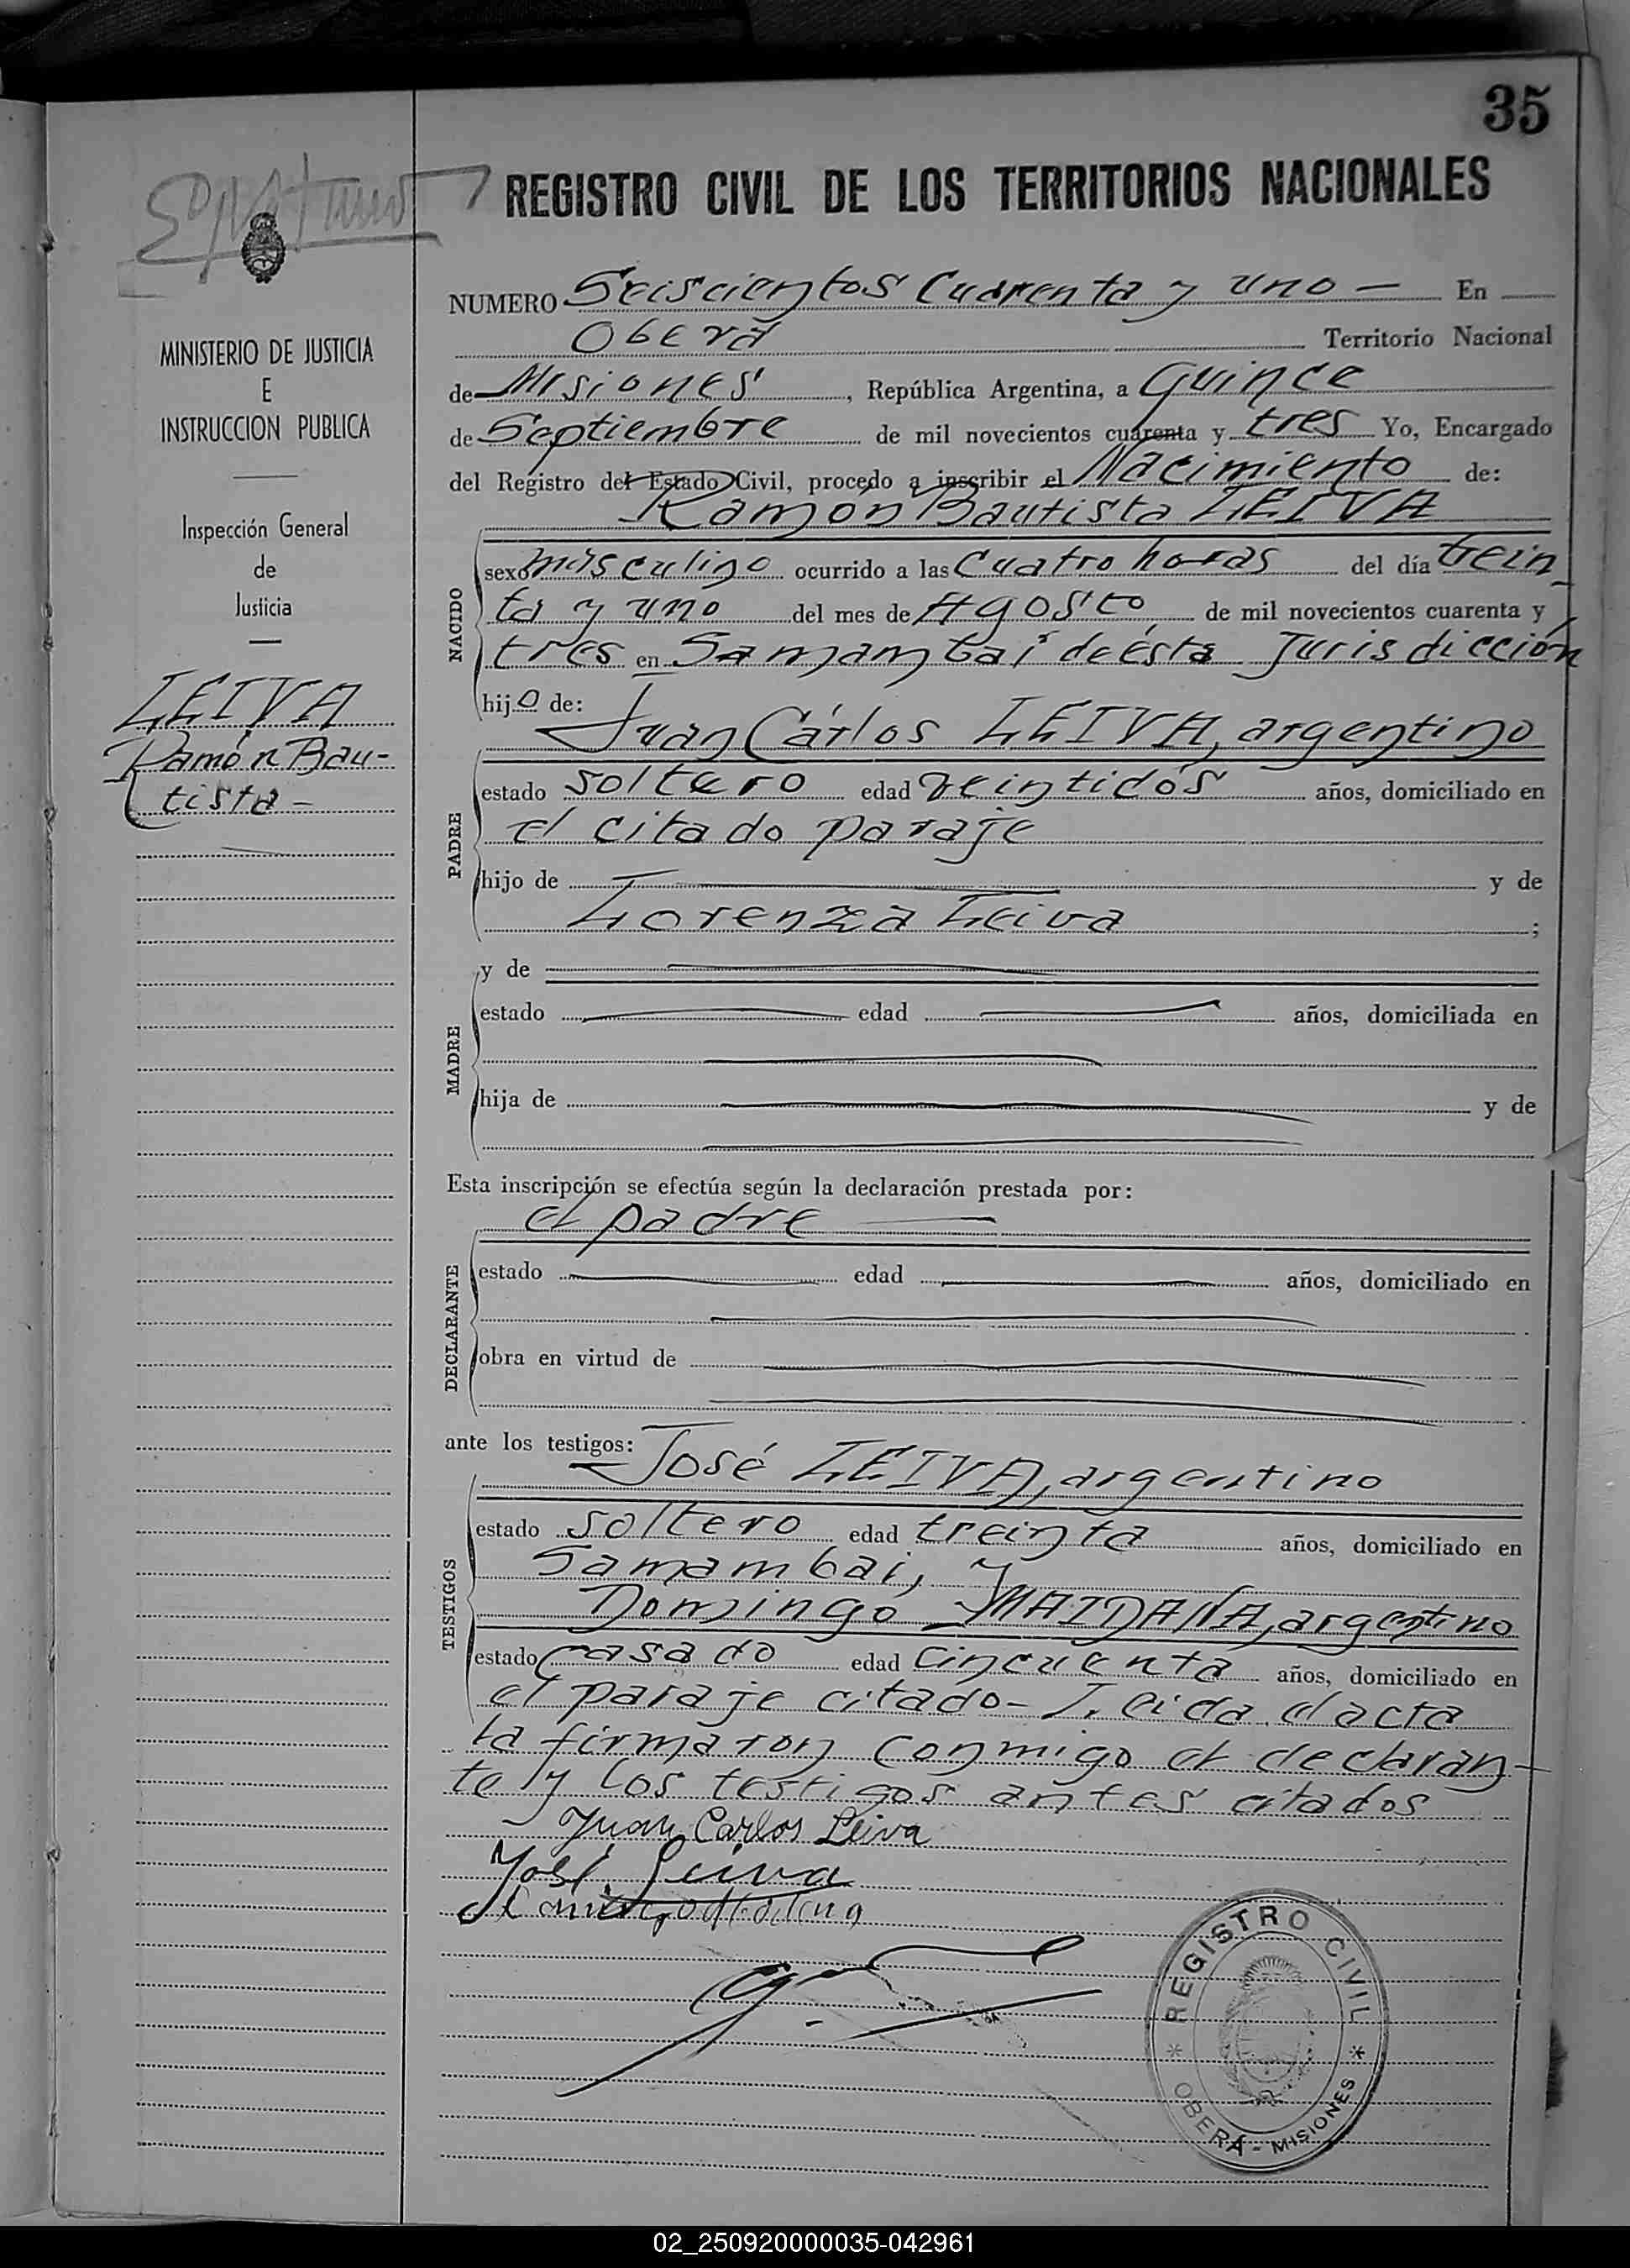 35
REGISTRO CIVIL DE LOS TERRITORIOS NACIONALES
MINISTERIO DE JUSTICIA
E
INSTRUCCION PUBLICA
Inspección General
de
Justicia
LEIVA
Ramón Bau-
tista -
NUMERO Seiscientos Cuarenta y uno — En
Oberá Territorio Nacional
de Misiones, República Argentina, a Quince
de Septiembre de mil novecientos cuarenta y tres Yo, Encargado
del Registro del Estado Civil, procedo a inscribir el Nacimiento de:
Ramón Bautista LEIVA
NACIDO
sexo masculino ocurrido a las Cuatro horas del día trein
ta y uno del mes de Agosto de mil novecientos cuarenta y
tres en Samambaí de ésta Jurisdicción
hijo de:
Juan Cárlos LEIVA, argentino
PADRE
estado soltero edad veintidós años, domiciliado en
el citado paraje
hijo de y de
Lorenza Leiva ;
MADRE
y de
estado edad años, domiciliada en
hija de y de
Esta inscripción se efectúa según la declaración prestada por:
el padre
DECLARANTE
estado edad años, domiciliado en
obra en virtud de
ante los testigos:
José LEIVA, argentino
TESTIGOS
estado soltero edad treinta años, domiciliado en
Samambai, y
Domingo MAIDANA, argentino
estado casado edad cincuenta años, domiciliado en
el paraje citado - Leida el acta
la firmaron conmigo el declaran-
te y los testigos antes citados
Juan Carlos Leiva
José Leiva
REGISTRO CIVIL
* OBERÁ - MISIONES *
02_250920000035-042961